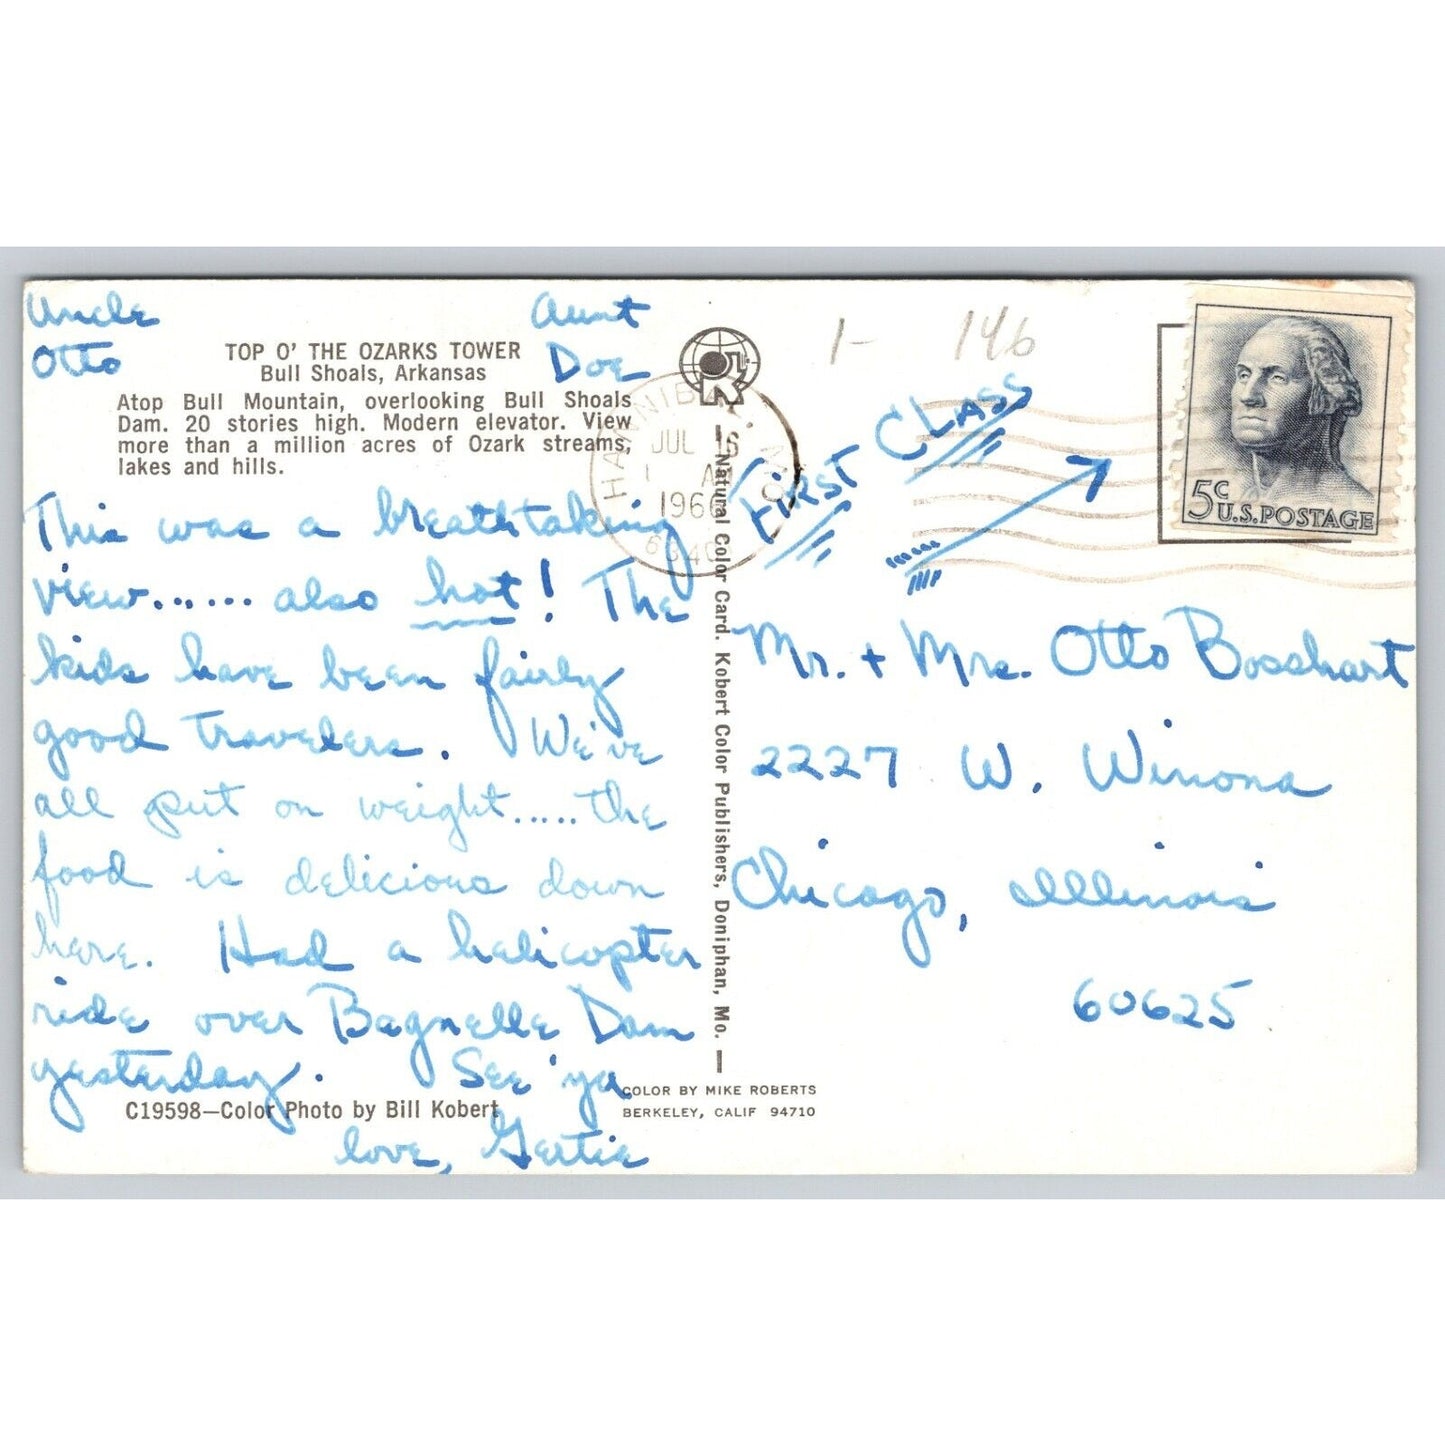 Uncle Otto
Aunt Doe
TOP O' THE OZARKS TOWER
Bull Shoals, Arkansas
Atop Bull Mountain, overlooking Bull Shoals
Dam. 20 stories high. Modern elevator. View
more than a million acres of Ozark streams,
lakes and hills.
This was a breathtaking
view...... also hot! The
kids have been fairly
good travelers. We've
all put on weight.....the
food is delicious down
here. Had a helicopter
ride over Bagnelle Dam
yesterday. See 'ya
love, Gertie
C19598—Color Photo by Bill Kobert
Natural Color Card. Kobert Color Publishers, Doniphan, Mo.
COLOR BY MIKE ROBERTS
BERKELEY, CALIF 94710
HANNIBAL, MO
JUL 16
1 AM
1966
634
1- 146
FIRST CLASS
5c
U.S. POSTAGE
Mr. + Mrs. Otto Bosshart
2227 W. Winona
Chicago, Illinois
60625